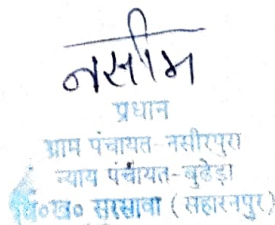 नसीम
प्रधान
ग्राम पंचायत-नसीरपुरा
न्याय पंचायत-बुढेड़ा
वि०ख० सरसावा (सहारनपुर)